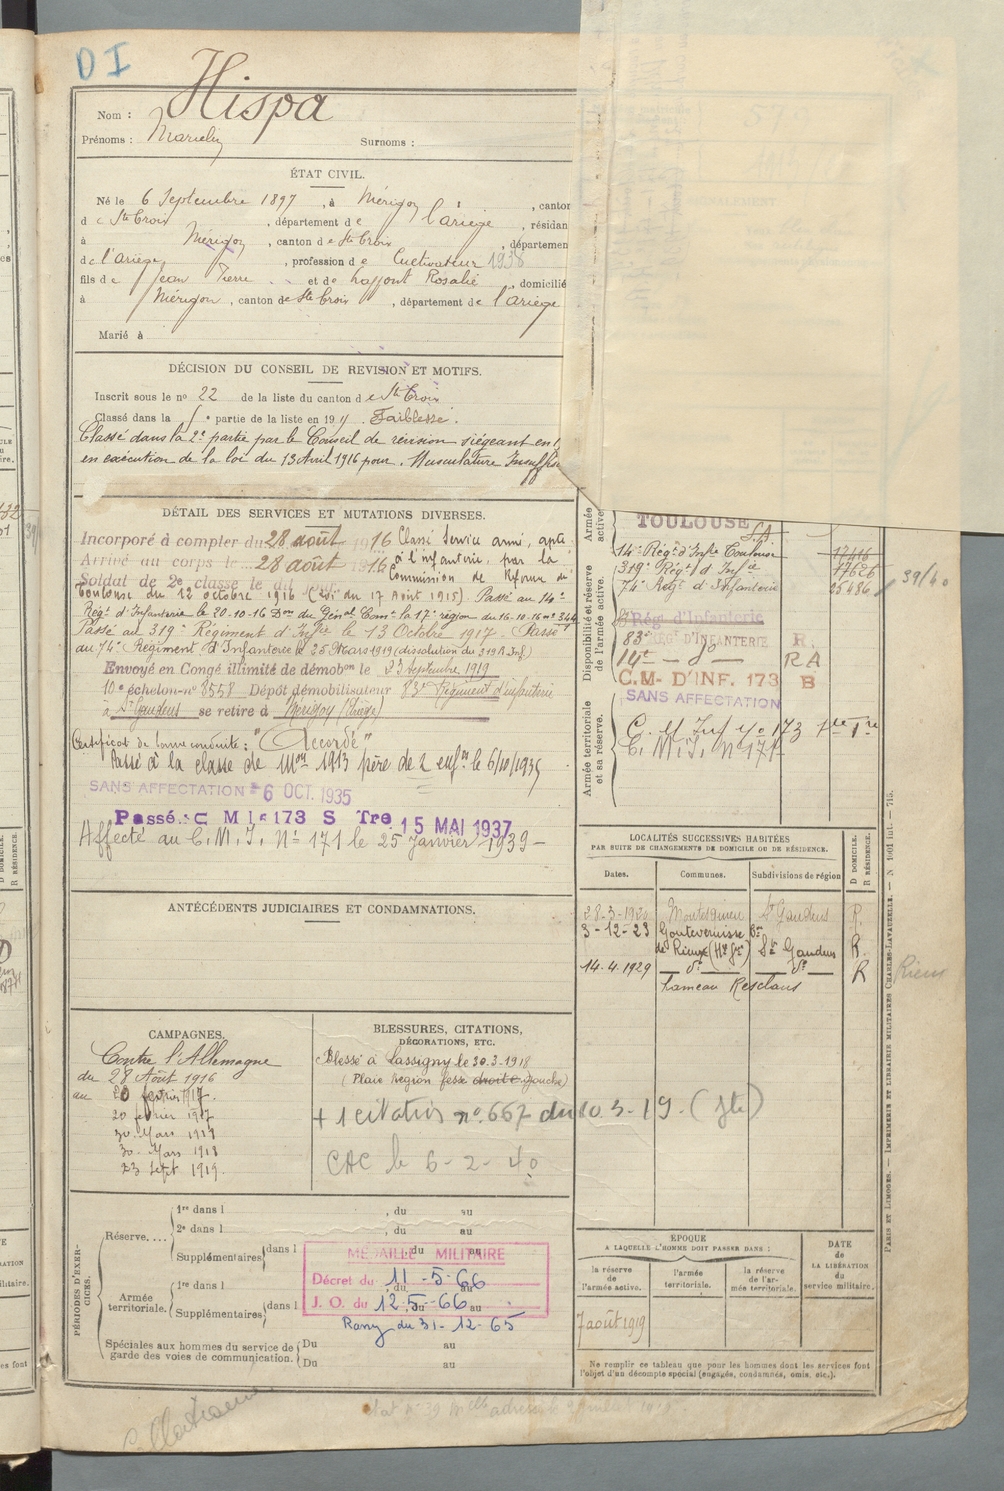 D I
Nom : Hispa
Prénoms : Marcelin Surnoms :
ÉTAT CIVIL.
Né le 6 Septembre 1897, à Mérigon, canton
de Ste Croix, département de l'ariège, résidan
à Mérigon, canton de Ste Croix, départemen
de l'Ariège, profession de Cultivateur 1938
fils de Jean Pierre et de Laffont Rosalie, domicilié
à Mérigon, canton de Ste Croix, département de l'Ariège
Marié à
DÉCISION DU CONSEIL DE REVISION ET MOTIFS.
Inscrit sous le nº 22 de la liste du canton de Ste Croix
Classé dans la 5e partie de la liste en 191 . Faiblesse.
Classé dans la 2e partie par le Conseil de révision siégeant en 1
en exécution de la loi du 13 Avril 1916 pour. Musculature
DÉTAIL DES SERVICES ET MUTATIONS DIVERSES.
Incorporé à compter du 28 août 1916 Classé Service armé, apte
Arrivé au corps le 28 août 1916 à l'infanterie, par la
Soldat de 2e classe le dit jour Commission de Réforme de
Toulouse du 12 octobre 1916 ( du 17 Août 1915). Passé au 14e
Régt d'Infanterie le 20-10-16 Don du Génal Comt la 17e région du 16-10-16 nº 344
Passé au 319e Régiment d'Infie le 13 Octobre 1917. Passé
au 74e Régiment d'Infanterie le 25 Mars 1919 (dissolution du 319 R.Inf.)
Envoyé en Congé illimité de démobon le 23 septembre 1919
10e échelon-nº 8558 Dépôt démobilisateur 83e Régiment d'infanterie
à St Gaudens se retire à Mérigon (Ariège)
Certificat de bonne conduite : "Accordé"
Passé à la classe de Mon 1913 père de 2 enfts le 6/10/1935
SANS AFFECTATION 6 OCT. 1935
Passé. C M I 173 S Tre 15 MAI 1937
Affecté au C. M. I. Nº 171 le 25 janvier 1939 -
ANTÉCÉDENTS JUDICIAIRES ET CONDAMNATIONS.
CAMPAGNES.
Contre l'Allemagne
du 28 Août 1916
au 20 février 1917.
20 février 1917
30 Mars 1918
30 Mars 1918
23 Sept 1919.
BLESSURES, CITATIONS,
DÉCORATIONS, ETC.
Blessé à Lassigny le 30.3.1918
(Plaie Région fesse droite gauche)
+ 1 citation nº 667 du 10 3-19. (Jte)
CAC le 6-2-40
PÉRIODES D'EXERCICES.
Réserve.... 1re dans l , du au
2e dans l , du au
Supplémentaires dans l du au
MÉDAILLE MILITAIRE
Décret du 11-5-66
J. O. du 12-5-66
Rang du 31-12-65
Armée territoriale. 1re dans l , du au
Supplémentaires dans l du au
Spéciales aux hommes du service de Du au
garde des voies de communication. Du au
Armée active.
TOULOUSE
S.A.
14e Régt d'Infie Toulouse 17416
319e Régt d'Infie 17626
74e Régt d'Infanterie 25456 39/40
Disponibilité et réserve de l'armée active.
Rég. d'Infanterie
83e RÉGt D'INFANTERIE R.
14e — do — R A
C.M- D'INF. 173 B
SANS AFFECTATION
Armée territoriale et sa réserve.
C. M. Inf nº 173
C. M. I. Nº 171
LOCALITÉS SUCCESSIVES HABITÉES
PAR SUITE DE CHANGEMENTS DE DOMICILE OU DE RÉSIDENCE.
Dates. Communes. Subdivisions de région D DOMICILE. R RÉSIDENCE.
28-3-1920 Montesquieu St Gaudens R.
3-12-23 Goutevernisse con
de Rieux (Hte Gne) St Gaudens R.
14.4.1929 — do — — do — R
hameau Resclaus
Rieux
ÉPOQUE
A LAQUELLE L'HOMME DOIT PASSER DANS :
DATE de LA LIBÉRATION du service militaire.
la réserve de l'armée active. l'armée territoriale. la réserve de l'armée territoriale.
7 août 1919
Ne remplir ce tableau que pour les hommes dont les services font
l'objet d'un décompte spécial (engagés, condamnés, omis, etc.).
PARIS ET LIMOGES. — IMPRIMERIE ET LIBRAIRIE MILITAIRES CHARLES-LAVAUZELLE. — N 1001 int. — 715.